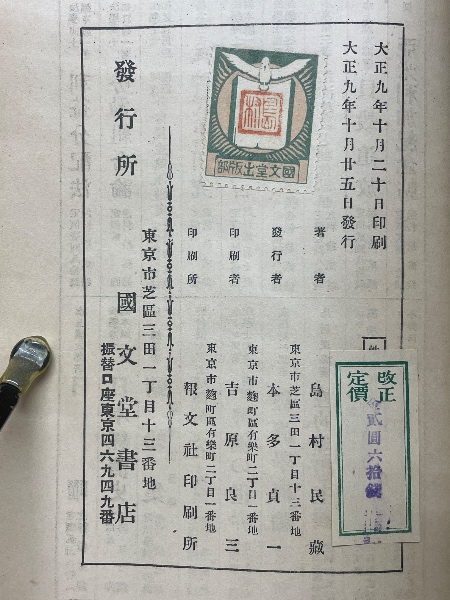 大正九年十月二十日印刷
大正九年十月廿五日發行
國文堂出版部
改正
定價
金貳圓六拾錢
著者 島村民藏
東京市芝區三田一丁目十三番地
發行者 本多貞一
東京市麴町區有樂町二丁目一番地
印刷者 吉原良三
東京市麴町區有樂町二丁目一番地
印刷所 報文社印刷所
東京市芝區三田一丁目十三番地
發行所 國文堂書店
振替口座東京四六九四九番